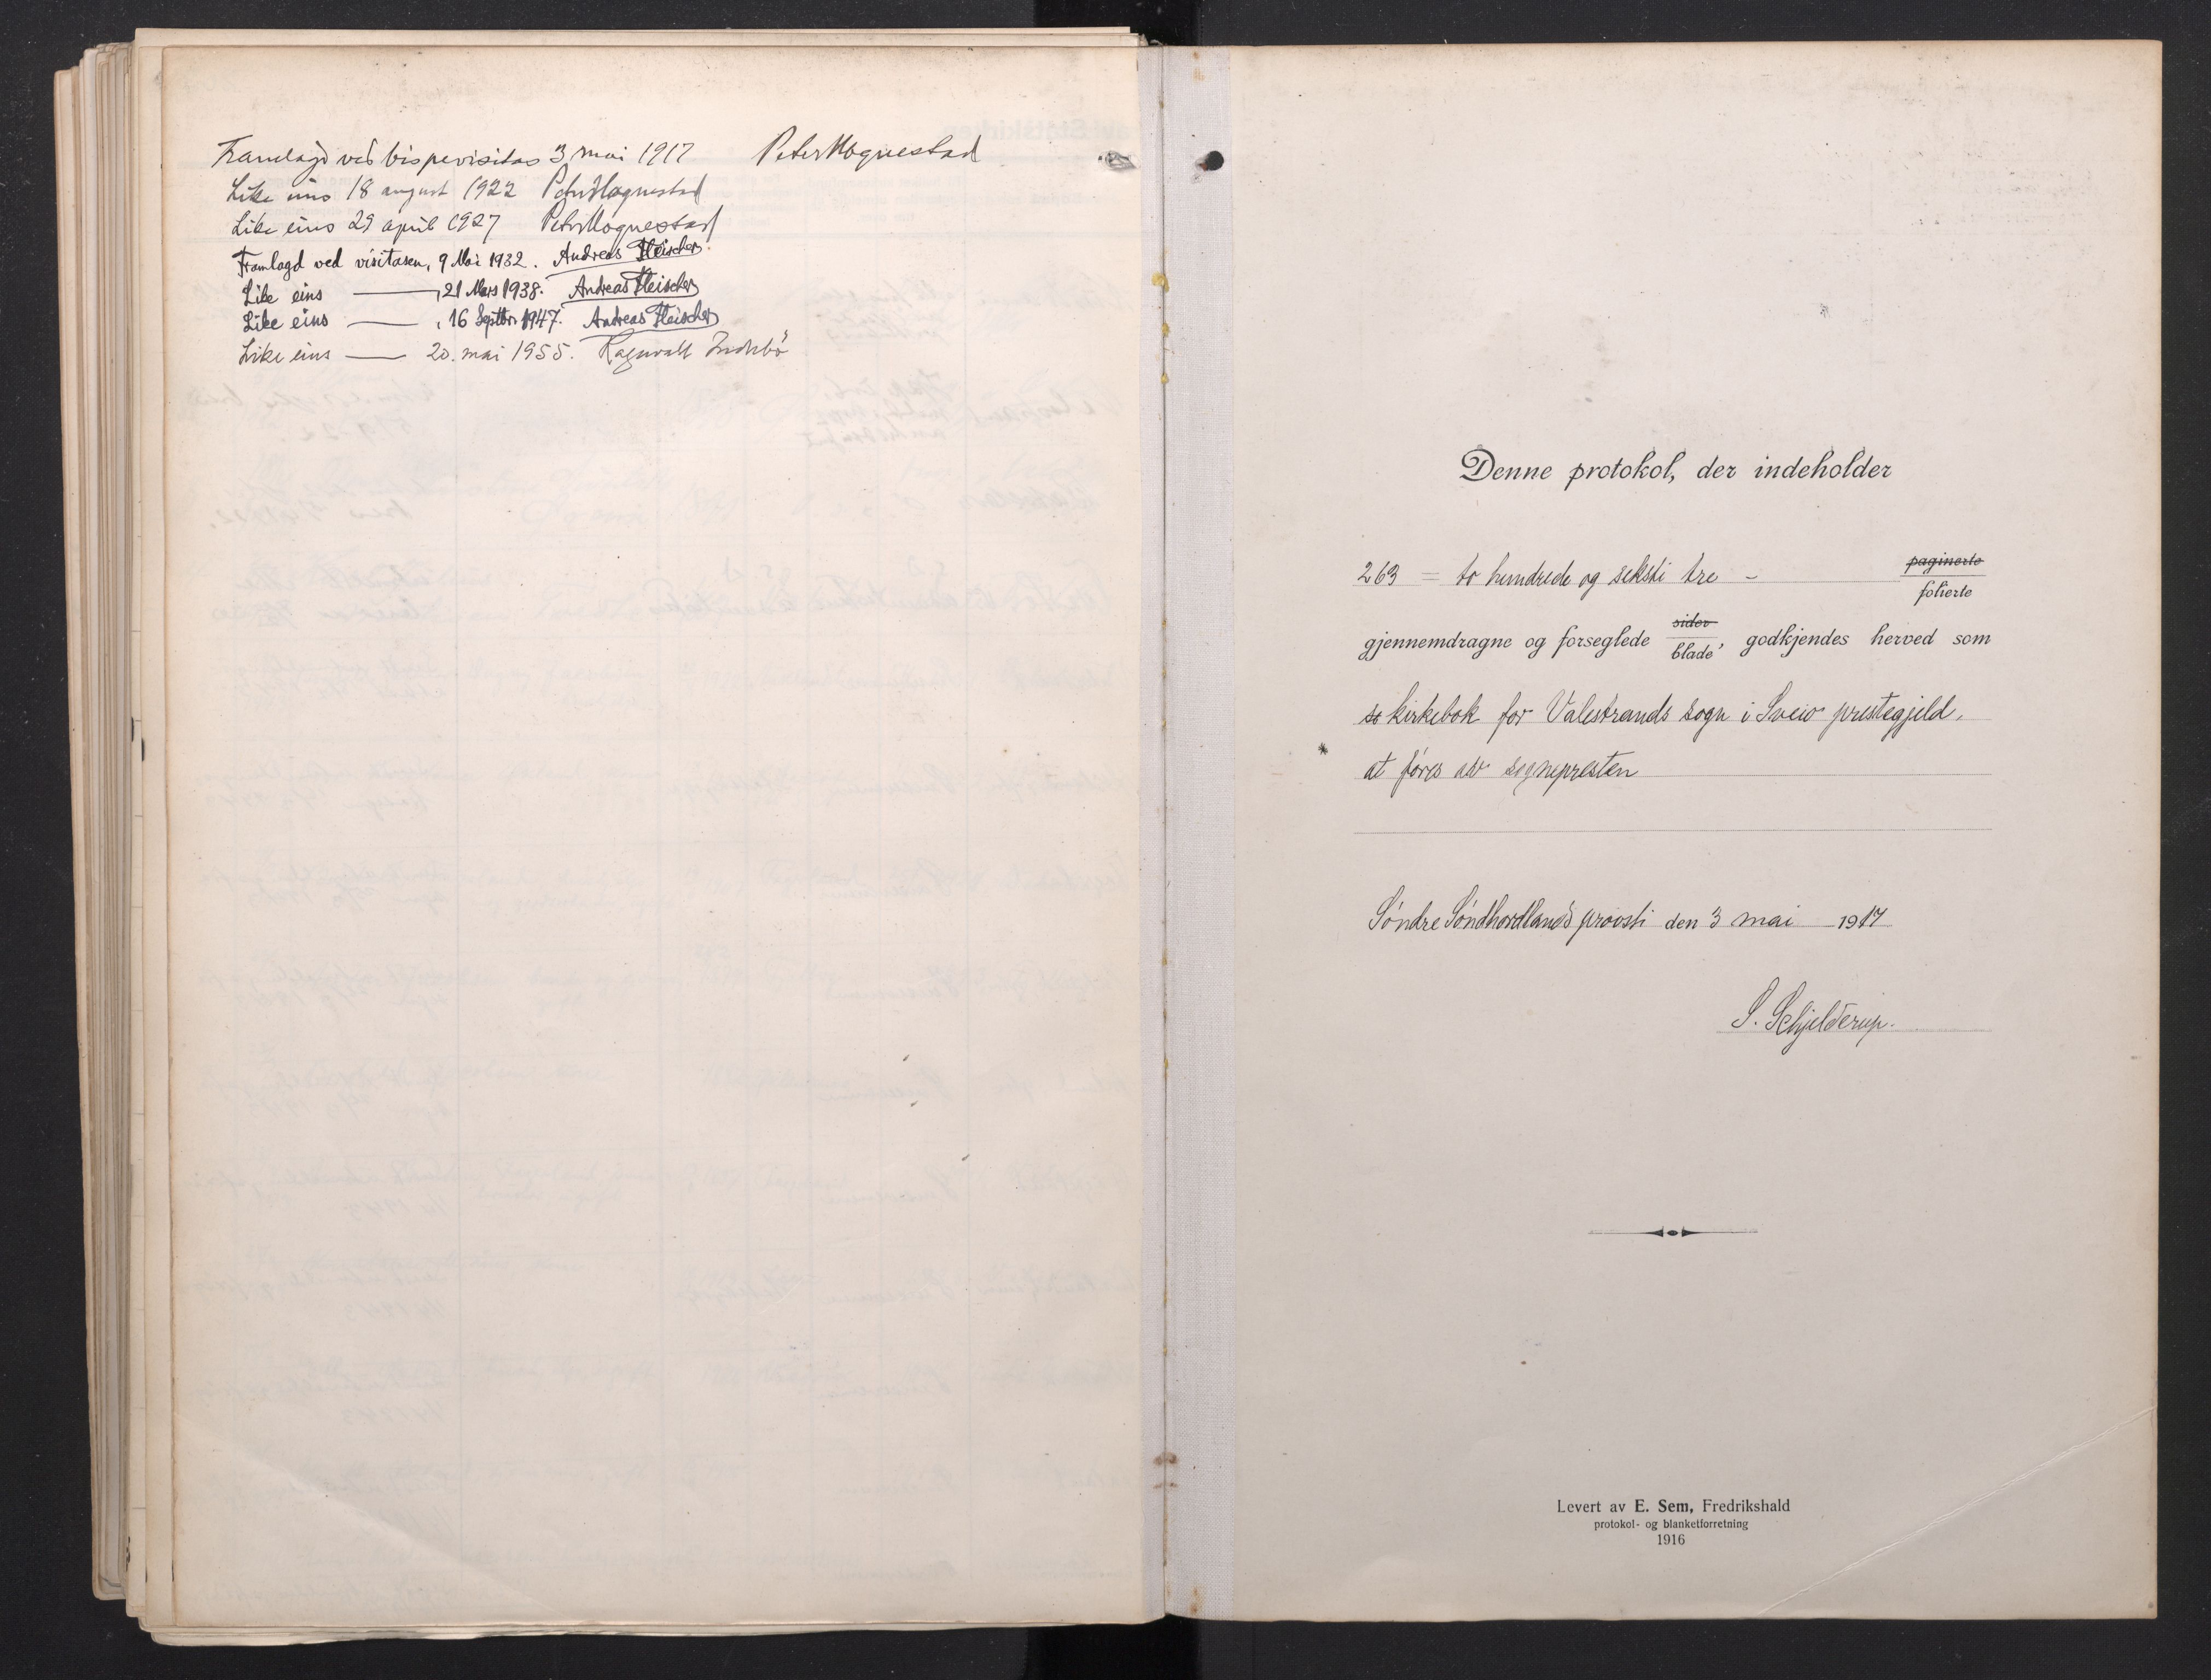 Framlagd ved bispevisitas 3 mai 1917 Peter Hognestad
Like eins 18 august 1922 Peter Hognestad
Like eins 29 april 1927 Peter Hognestad
Framlagd ved visitasen, 9 Mai 1932. Andreas Fleischer.
Like eins —— , 21 Mars 1938. Andreas Fleischer
Like eins —— , 16 Septbr. 1947. Andreas Fleischer
Like eins —— 20. mai 1955. Ragnvald Indrebö
Denne protokol, der indeholder
263 = to hundrede og seksti tre – paginerte
folierte
gjennemdragne og forseglede sider
blade, godkjendes herved som
so kirkebok for Valestrands sogn i Sveio prestegjeld,
at føres av sognepresten
Söndre Söndhordlands provsti den 3 mai 1917
S. Schjelderup.
Levert av E. Sem, Fredrikshald
protokol- og blanketforretning
1916